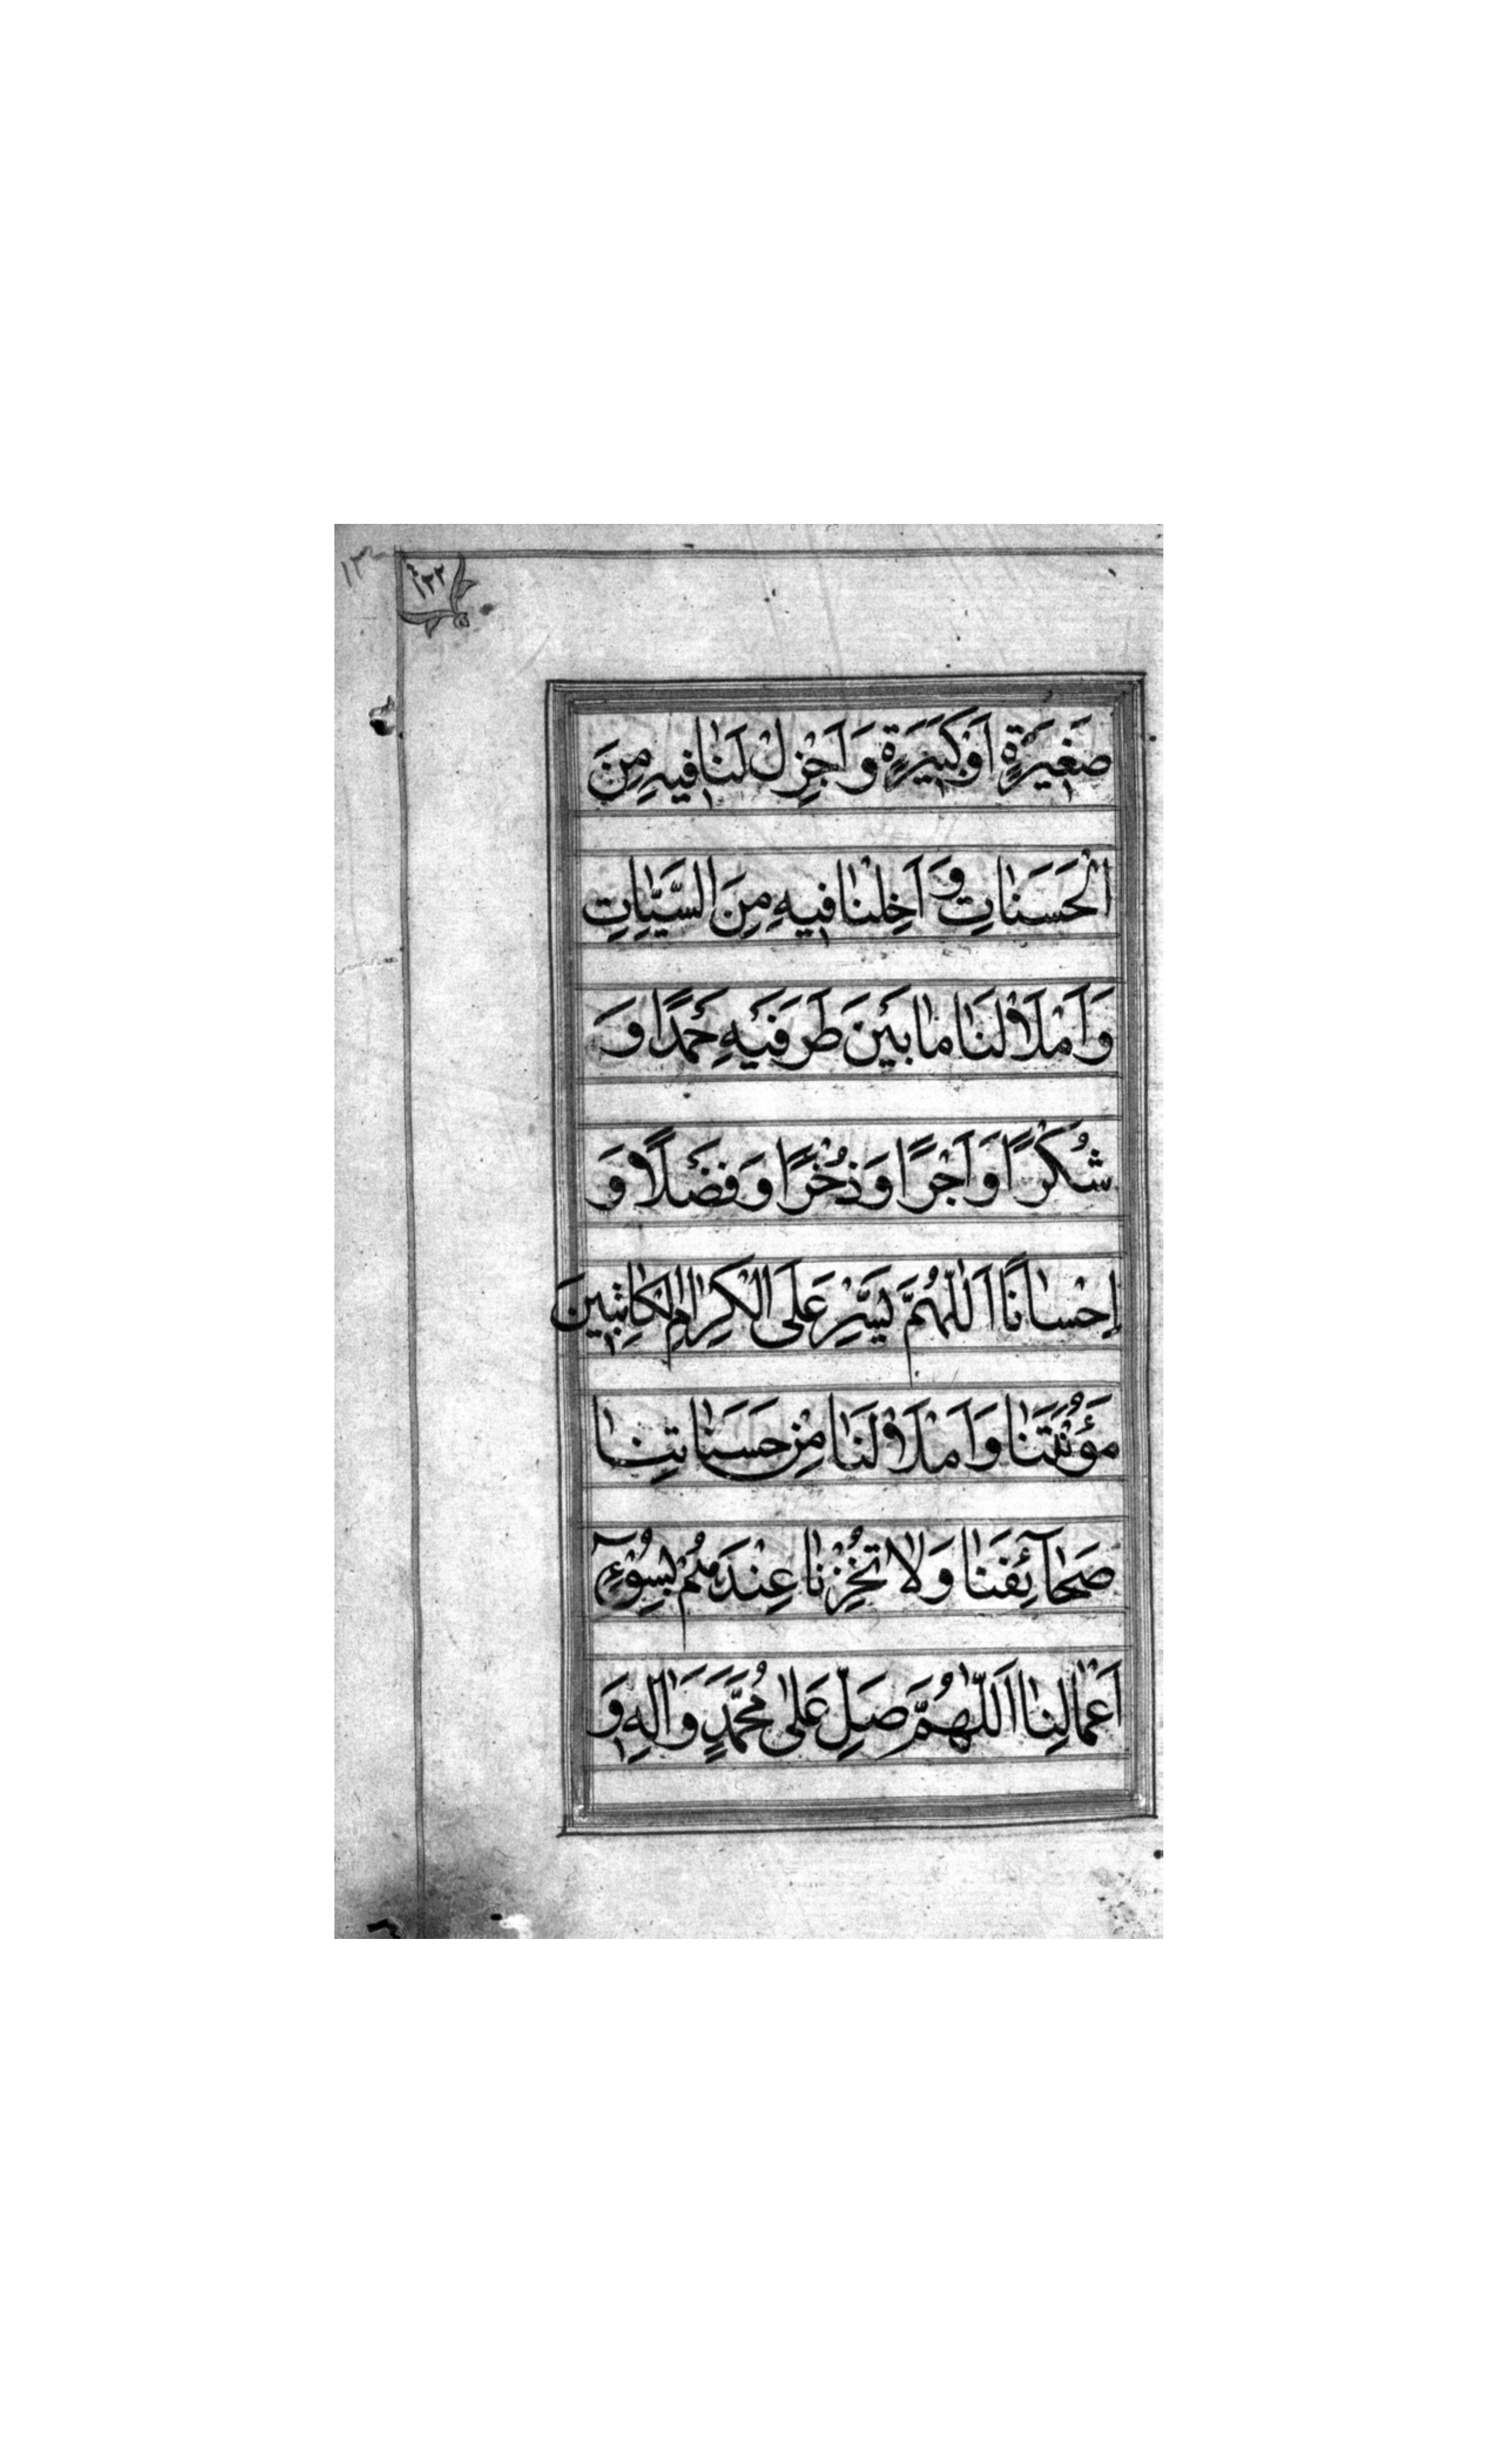 ١٣٢
صَغيرَةٍ اَوْ كَبيرَةٍ وَاَجْزِلْ لَنا فيهِ مِنَ
الْحَسَناتِ وَ اَخْلِنا فيهِ مِنَ السَّيِّاتِ
وَاَمْلَاْ لَنا ما بَيْنَ طَرَفَيْهِ حَمْدًا وَ
شُكْرًا وَاَجْرًا وَذُخْرًا وَفَضْلًا وَ
اِحْسانًا اَللّهُمَّ يَسِّرْ عَلَى الْكِرامِ الْكاتِبينَ
مَؤُنَتَنا وَامْلَاْ لَنا مِنْ حَسَناتِنا
صَحآئِفَنا وَلا تُخْزِنا عِنْدَهُمْ بِسُوْءِ
اَعْمالِنا اَللّهُمَّ صَلِّ عَلى مُحَمَّدٍ وَالِهِ وَ